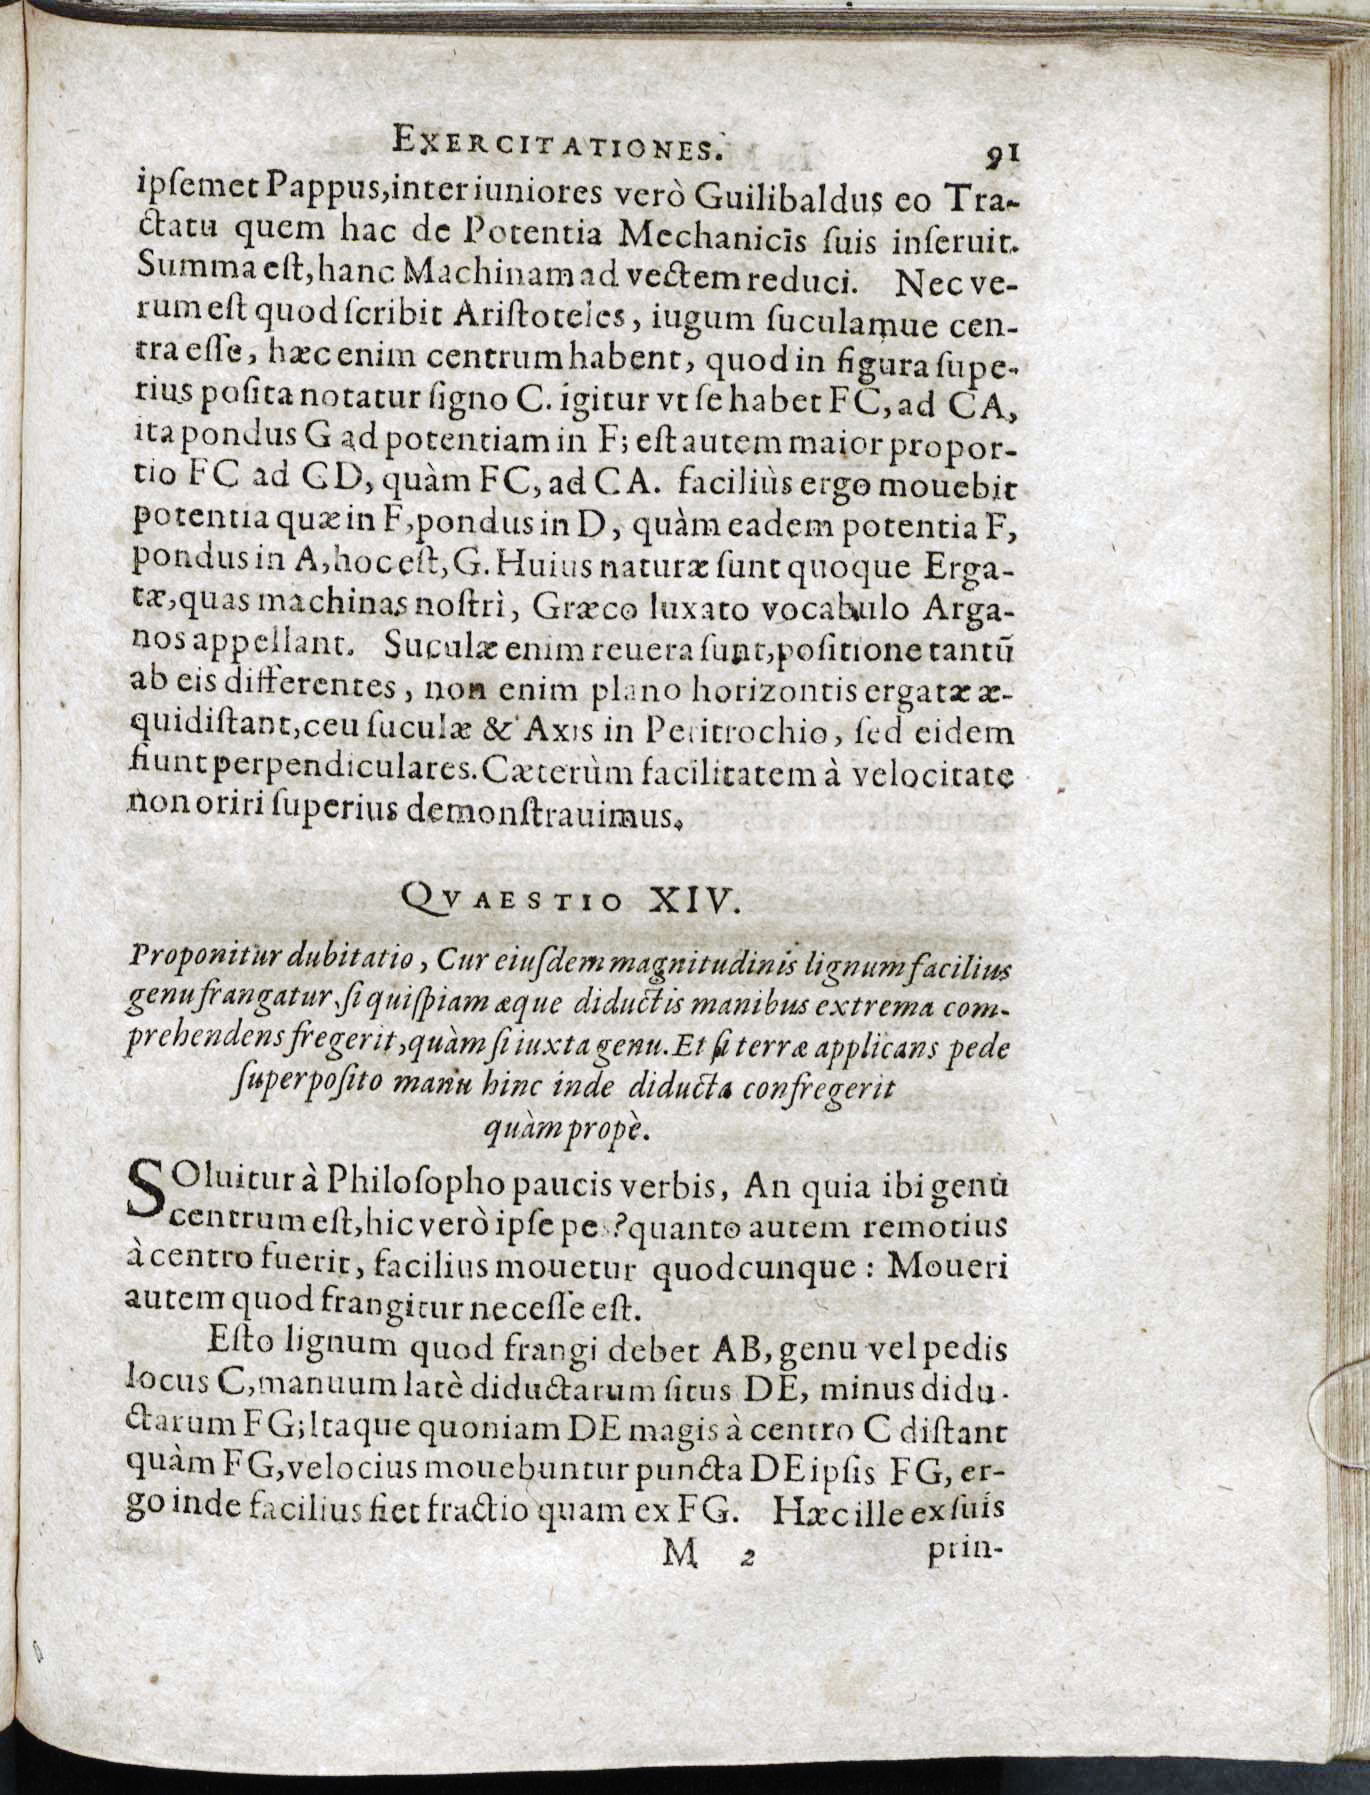 EXERCITATIONES. 91
ipſemet Pappus, inter iuniores verò Guilibaldus eo Tra-
ctatu quem hac de Potentia Mechanicis ſuis inſeruit.
Summa eſt, hanc Machinam ad vectem reduci. Nec ve-
rum eſt quod ſcribit Ariſtoteles, iugum ſuculamue cen-
tra eſſe, hæc enim centrum habent, quod in figura ſupe-
rius poſita notatur ſigno C. igitur vt ſe habet FC, ad CA,
ita pondus G ad potentiam in F; eſt autem maior propor-
tio FC ad CD, quàm FC, ad CA. faciliùs ergo mouebit
potentia quæ in F, pondus in D, quàm eadem potentia F,
pondus in A, hoc eſt, G. Huius naturæ ſunt quoque Erga-
tæ, quas machinas noſtri, Græco luxato vocabulo Arga-
nos appellant. Suculæ enim reuera ſunt, poſitione tantũ
ab eis differentes, non enim plano horizontis ergatæ æ-
quidiſtant, ceu ſuculæ & Axis in Peritrochio, ſed eidem
fiunt perpendiculares. Cæterùm facilitatem à velocitate
non oriri ſuperius demonſtrauimus.
QVAESTIO XIV.
Proponitur dubitatio, Cur eiuſdem magnitudinis lignum facilius
genu frangatur, ſi quiſpiam æque diductis manibus extrema com-
prehendens fregerit, quàm ſi iuxta genu. Et ſi terræ applicans pede
ſuperpoſito manu hinc inde diducta confregerit
quàm propè.
SOluitur à Philoſopho paucis verbis, An quia ibi genu
centrum eſt, hic verò ipſe pes? quanto autem remotius
à centro fuerit, facilius mouetur quodcunque: Moueri
autem quod frangitur neceſſe eſt.
Eſto lignum quod frangi debet AB, genu vel pedis
locus C, manuum latè diductarum ſitus DE, minus didu-
ctarum FG; Itaque quoniam DE magis à centro C diſtant
quàm FG, velocius mouebuntur puncta DE ipſis FG, er-
go inde facilius fiet fractio quam ex FG. Hæc ille ex ſuis
M 2 prin-